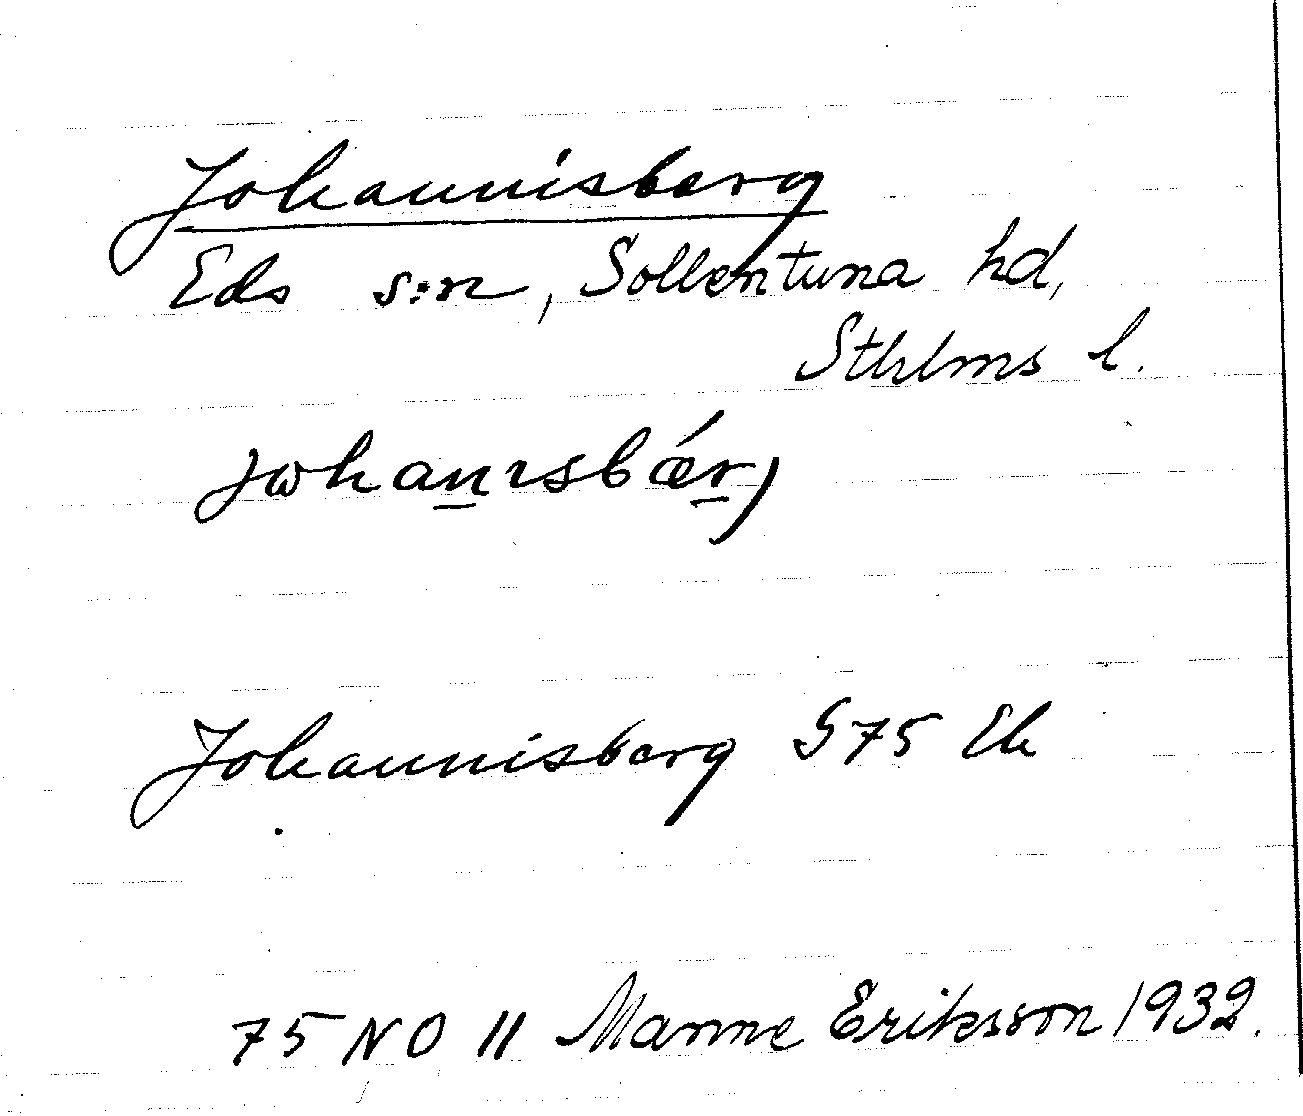 Johannisberg
Eds s:n, Sollentuna hd,
Sthlms l.
jωhan̲ɪsbǽr̲j
Johannisberg S75 Ek
75 NO II Manne Eriksson 1932.